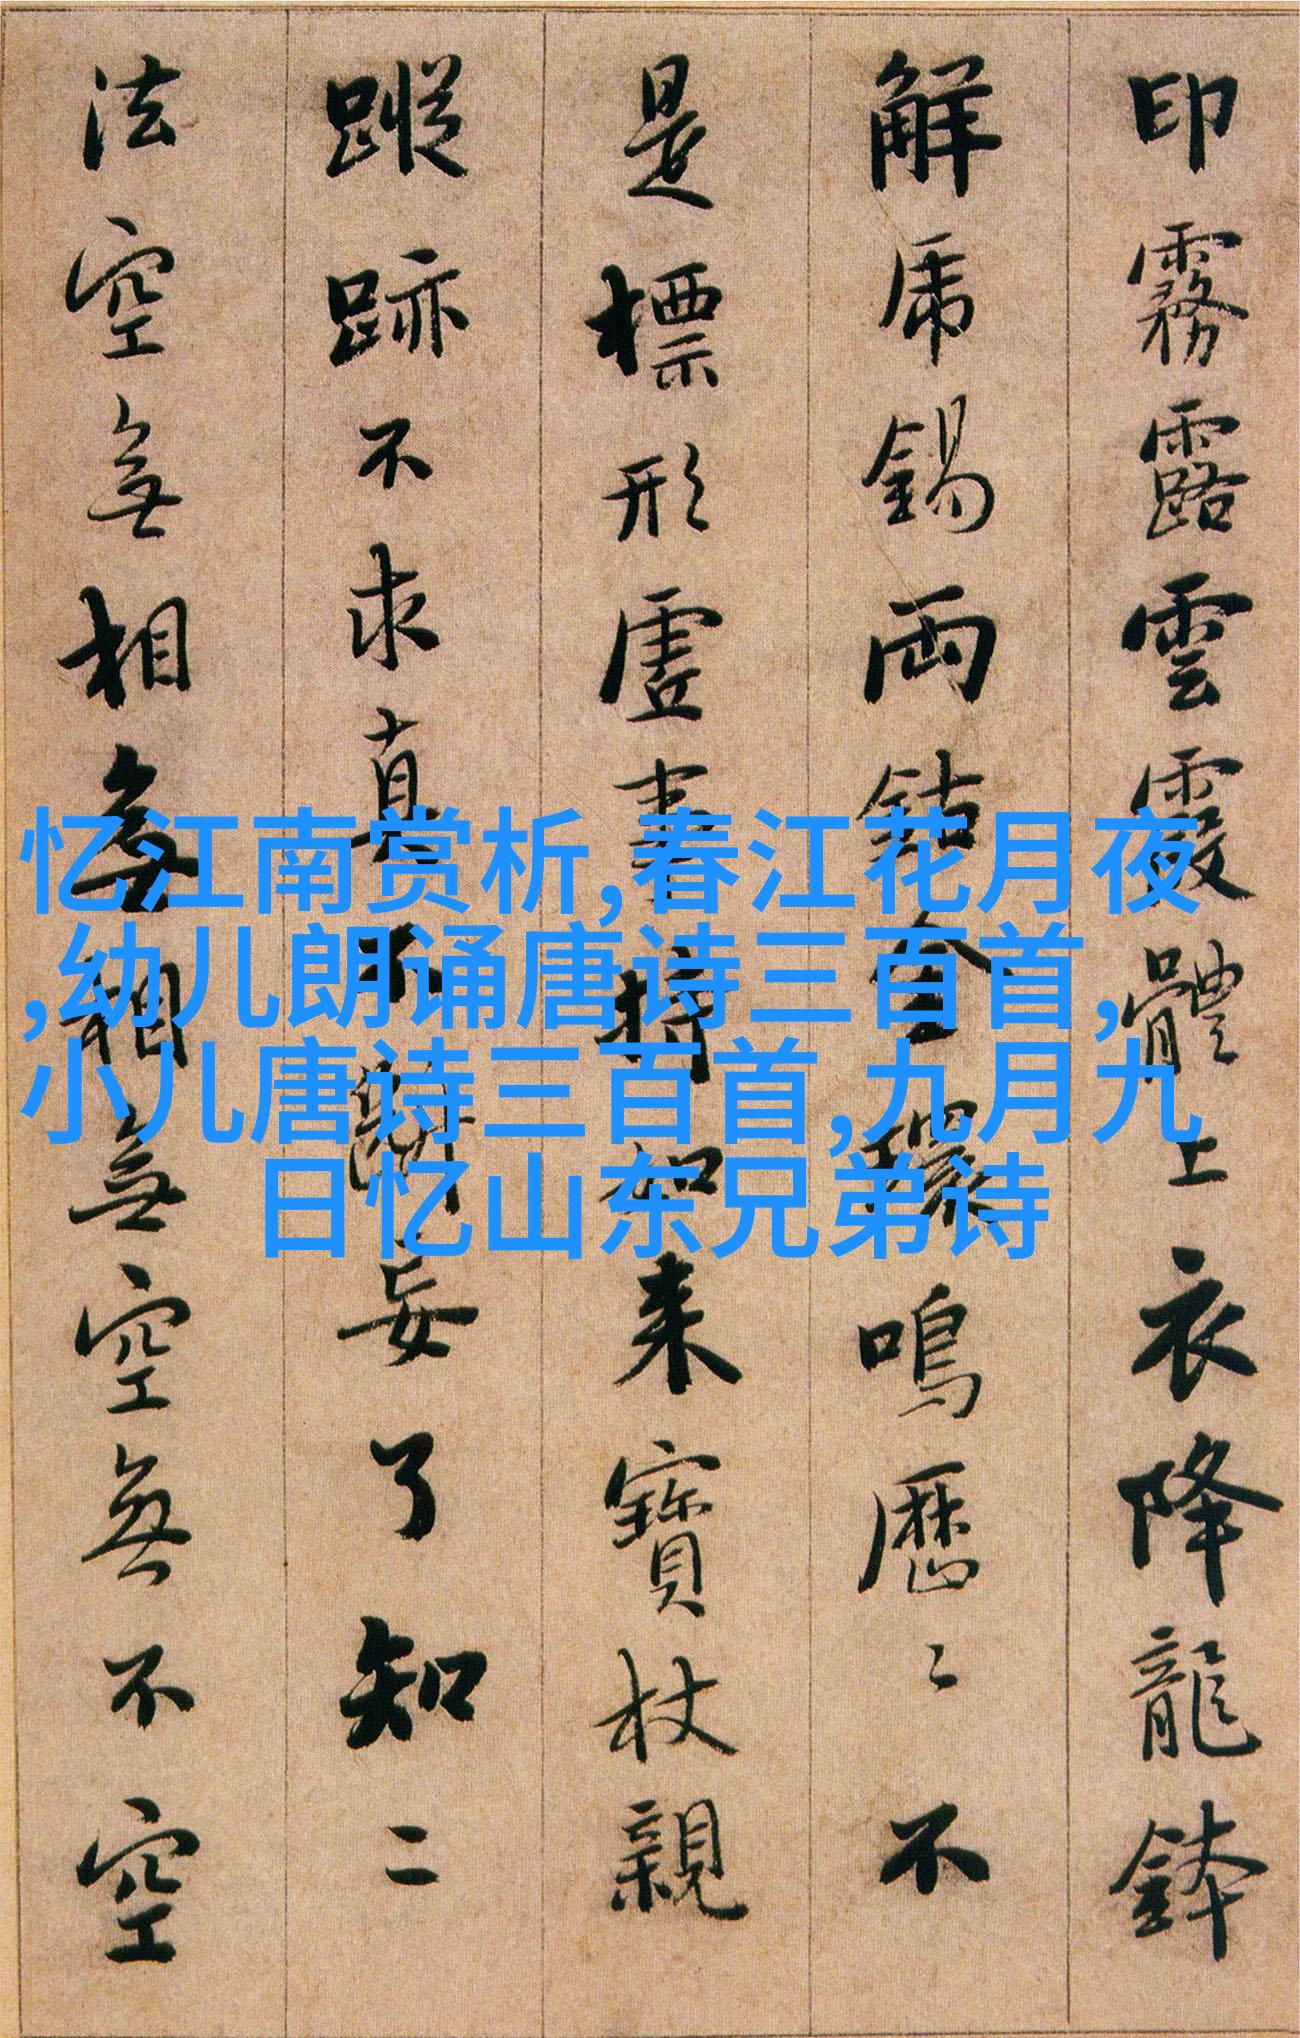 印霧露雲霞體上衣降龍鉢
解虎錫兩鈷金環鳴歷〻不
是標形虛事持如來寶杖親
蹤跡不求真不斷妄了知二
法空無相無相無空無不空
忆江南赏析,春江花月夜
,幼儿朗诵唐诗三百首,
小儿唐诗三百首,九月九
日忆山东兄弟诗